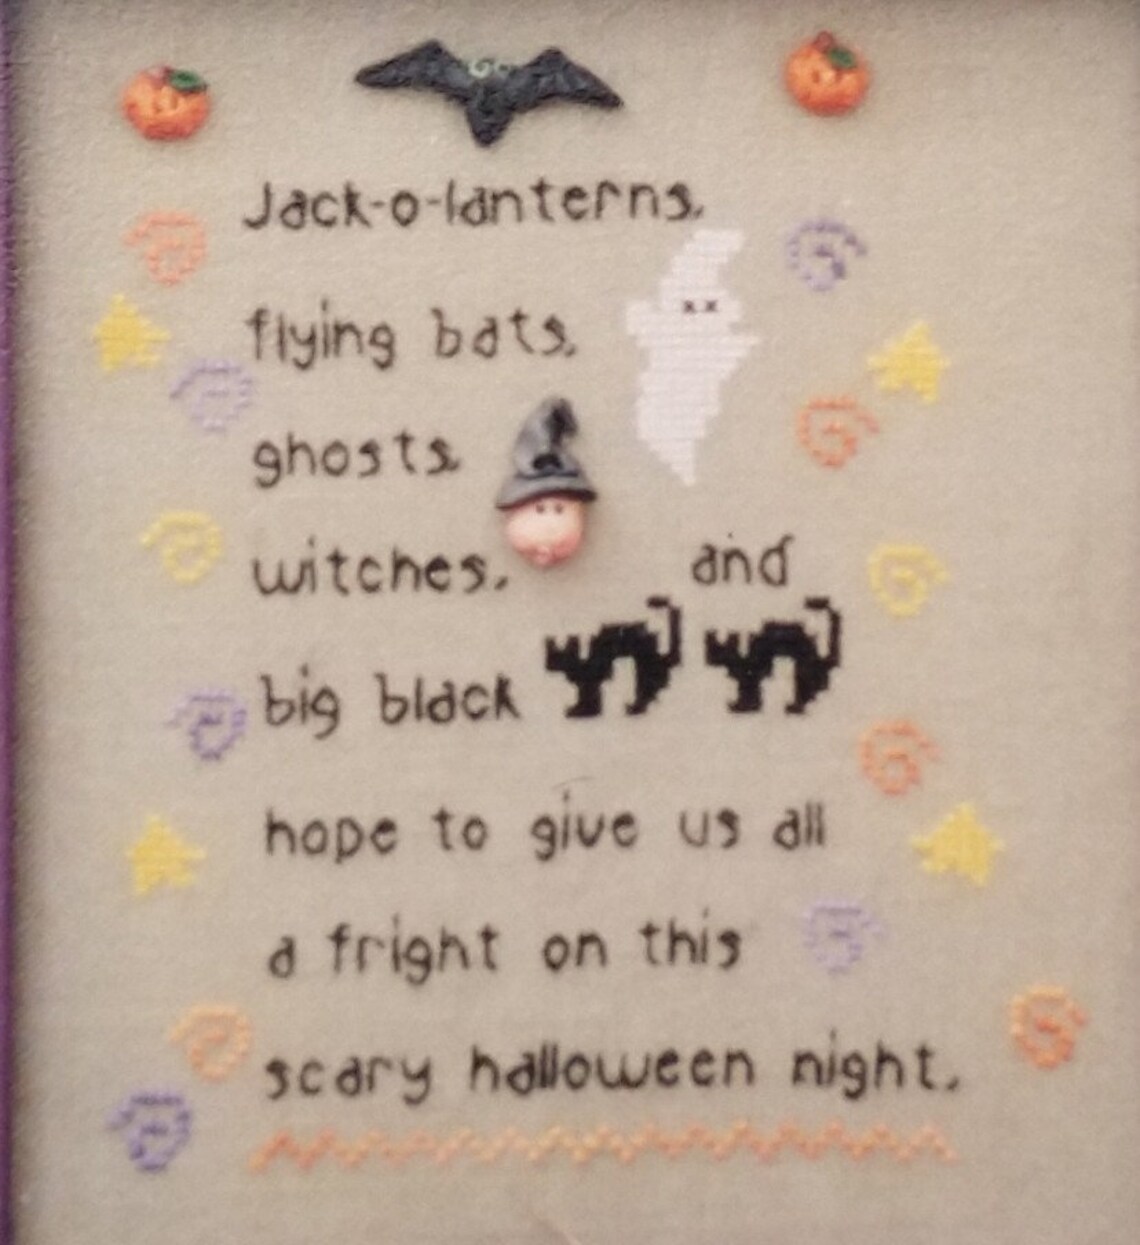 Jack-o-lanterns,
flying bats,
ghosts,
witches, and
big black
hope to give us all
a fright on this
scary halloween night.